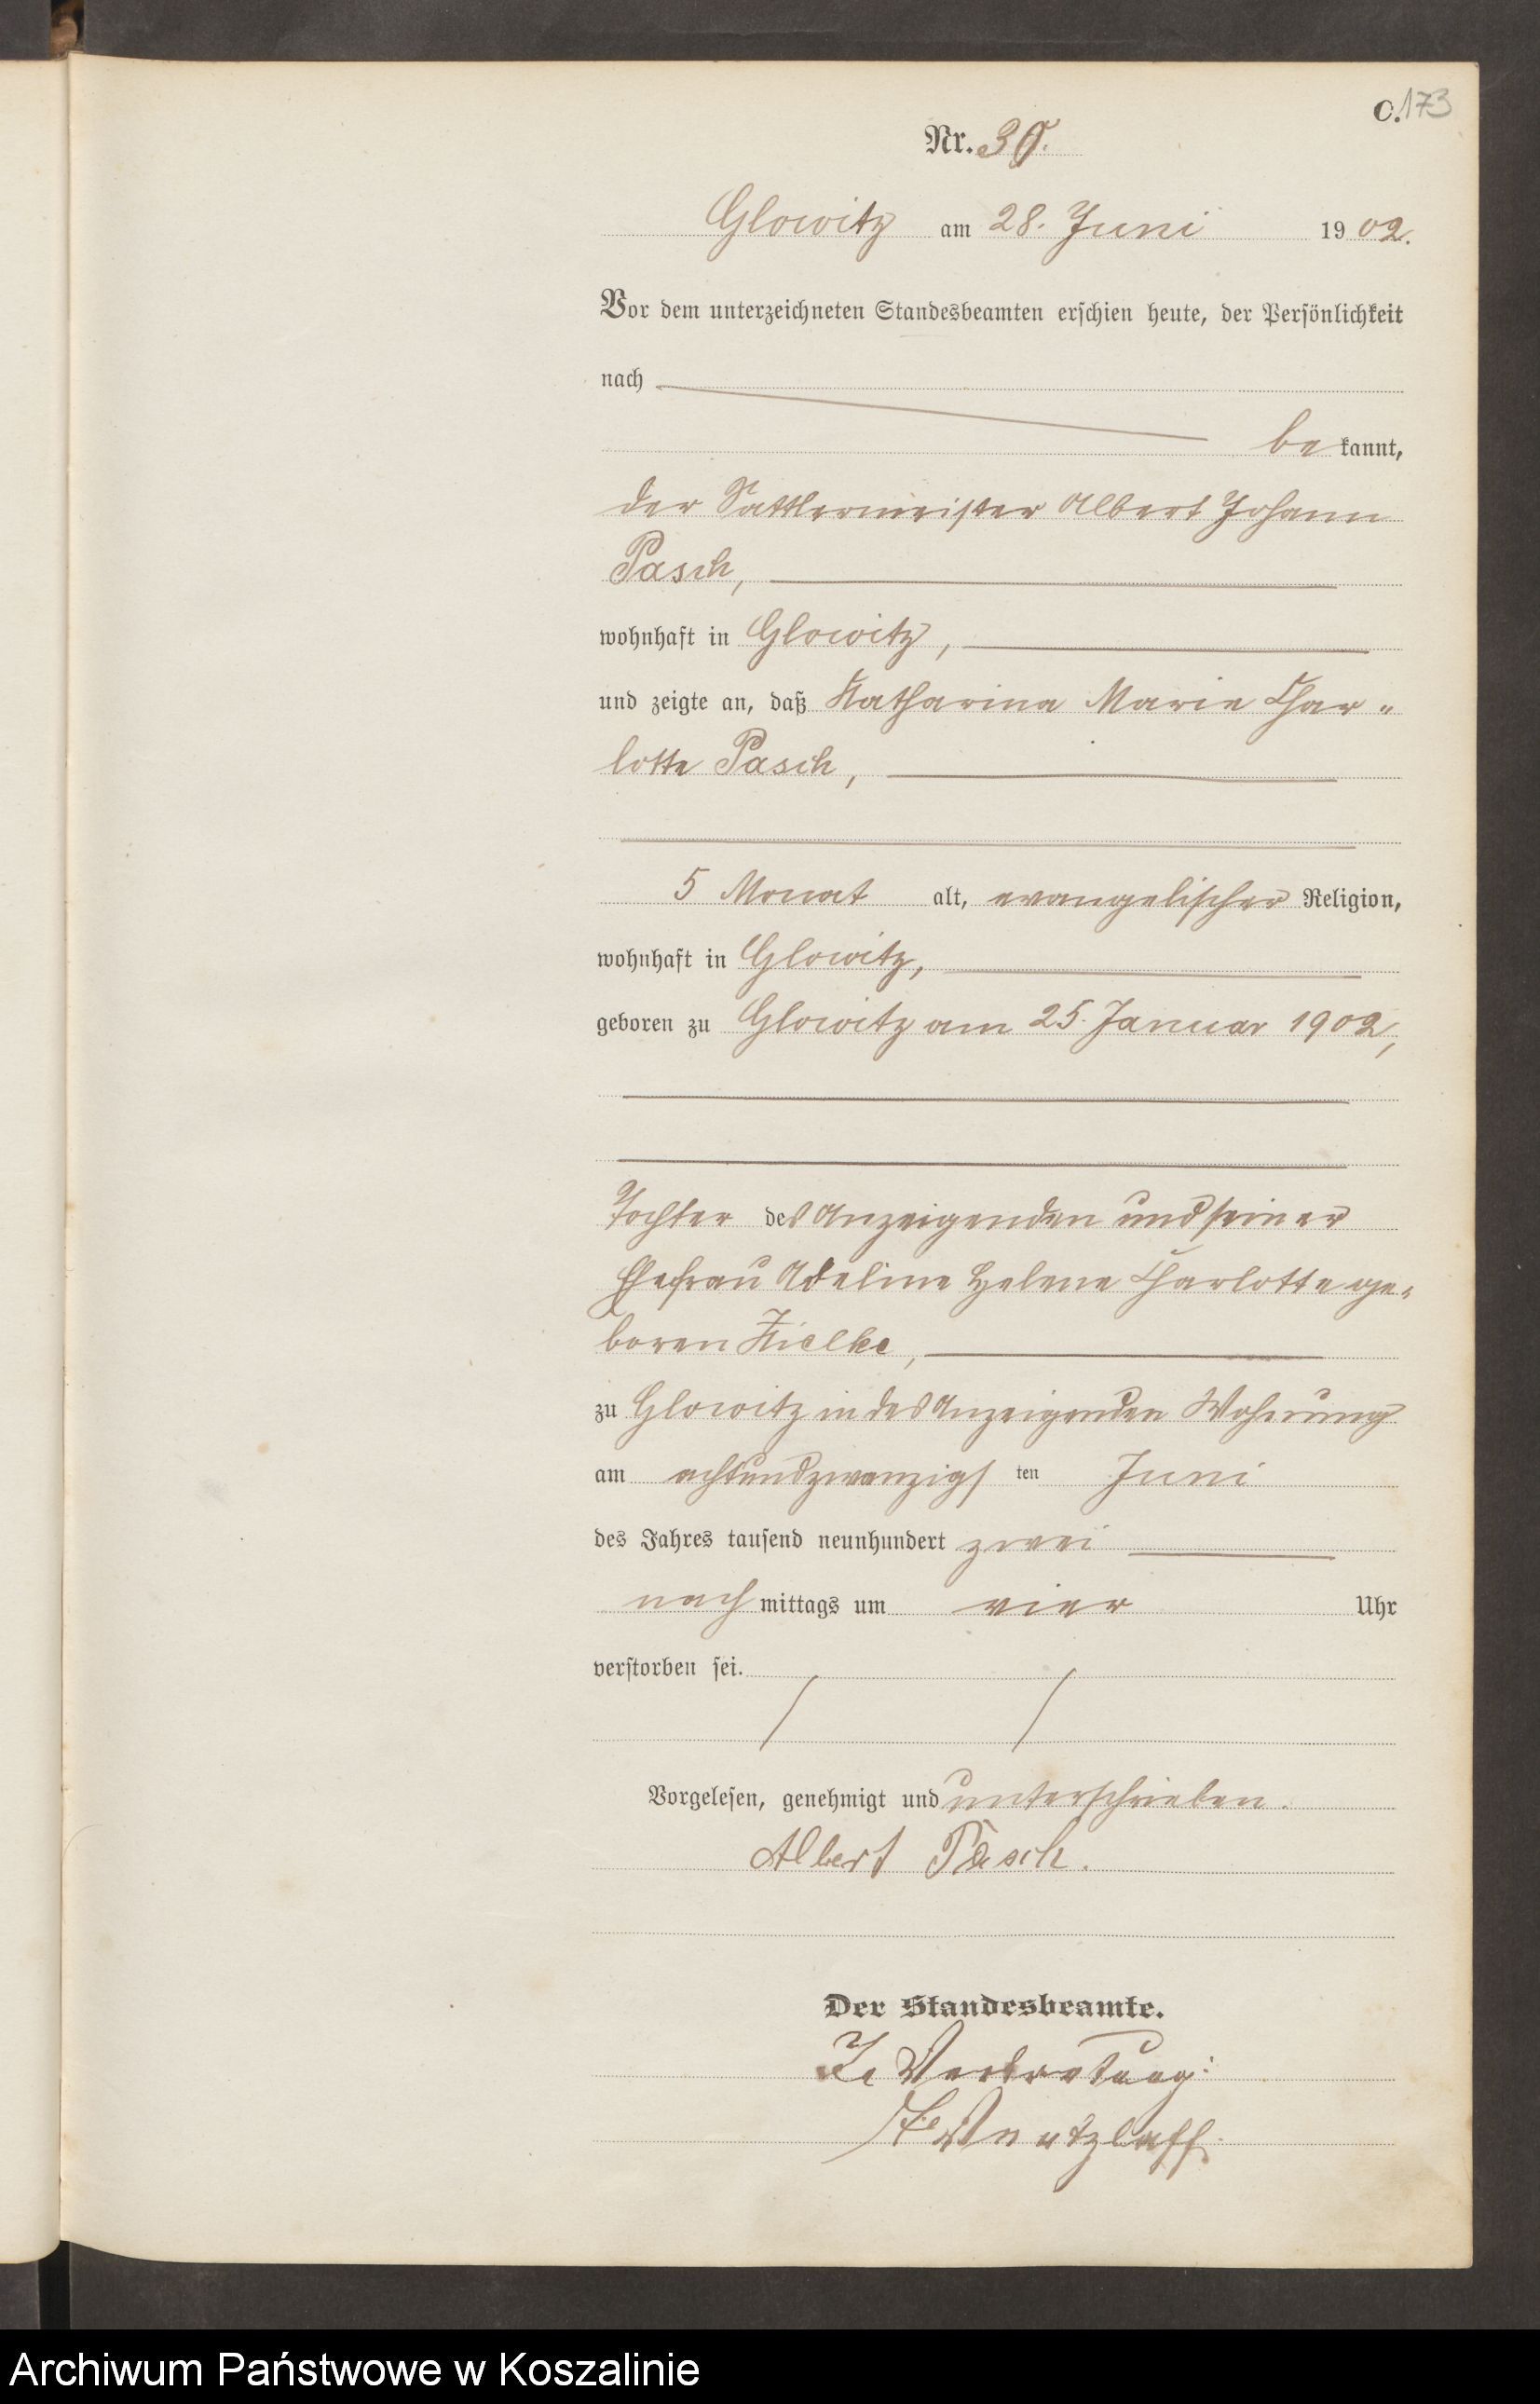 C. 173
Nr. 39.
Glowitz am 28. Juni 1902.
Vor dem unterzeichneten Standesbeamten erschien heute, der Persönlichkeit
nach
bekannt,
der Sattlermeister Albert Johann
Pasch,
wohnhaft in Glowitz,
und zeigte an, daß Katharina Marie Char-
lotte Pasch,
5 Monat alt, evangelischer Religion,
wohnhaft in Glowitz,
geboren zu Glowitz am 25. Januar 1902,
Tochter des Anzeigenden und seiner
Ehefrau Adeline Helene Charlotte ge-
boren Kielke,
zu Glowitz in des Anzeigenden Wohnung
am achtundzwanzigsten Juni
des Jahres tausend neunhundert zwei
nachmittags um vier Uhr
verstorben sei.
Vorgelesen, genehmigt und unterschrieben.
Albert Pasch.
Der Standesbeamte.
In Vertretung:
Wentzlaff.
Archiwum Państwowe w Koszalinie